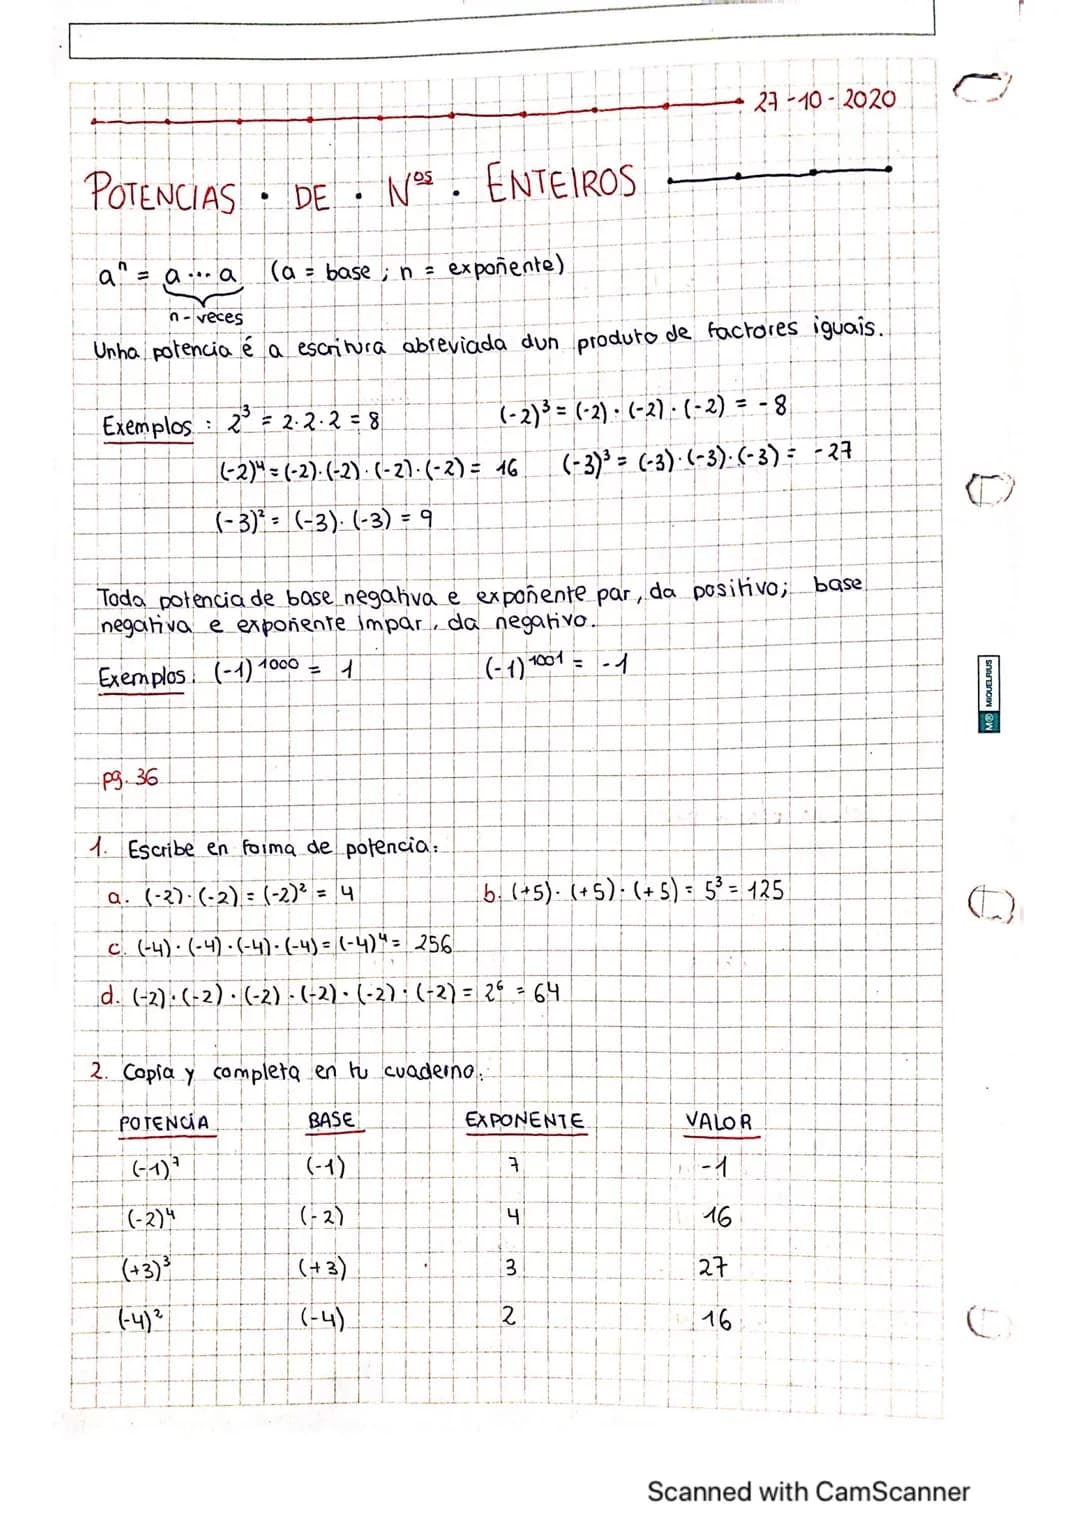 27-10-2020
POTENCIAS · DE · Nºˢ · ENTEIROS
aⁿ = a ... a (a = base ; n = expoñente)
n-veces
Unha potencia é a escritura abreviada dun produto de factores iguais.
Exemplos : 2³ = 2·2·2 = 8 (-2)³ = (-2)·(-2)·(-2) = -8
(-2)⁴ = (-2)·(-2)·(-2)·(-2) = 16 (-3)³ = (-3)·(-3)·(-3) = -27
(-3)² = (-3)·(-3) = 9
Toda potencia de base negativa e expoñente par, da positivo; base
negativa e expoñente impar, da negativo.
Exemplos: (-1)¹⁰⁰⁰ = 1 (-1)¹⁰⁰¹ = -1
pg. 36
1. Escribe en forma de potencia:
a. (-2)·(-2) = (-2)² = 4 b. (+5)·(+5)·(+5) = 5³ = 125
c. (-4)·(-4)·(-4)·(-4) = (-4)⁴ = 256
d. (-2)·(-2)·(-2)·(-2)·(-2)·(-2) = 2⁶ = 64
2. Copia y completa en tu cuaderno.
POTENCIA BASE EXPONENTE VALOR
(-1)⁷ (-1) 7 -1
(-2)⁴ (-2) 4 16
(+3)³ (+3) 3 27
(-4)² (-4) 2 16
MR MIQUELRIUS
Scanned with CamScanner